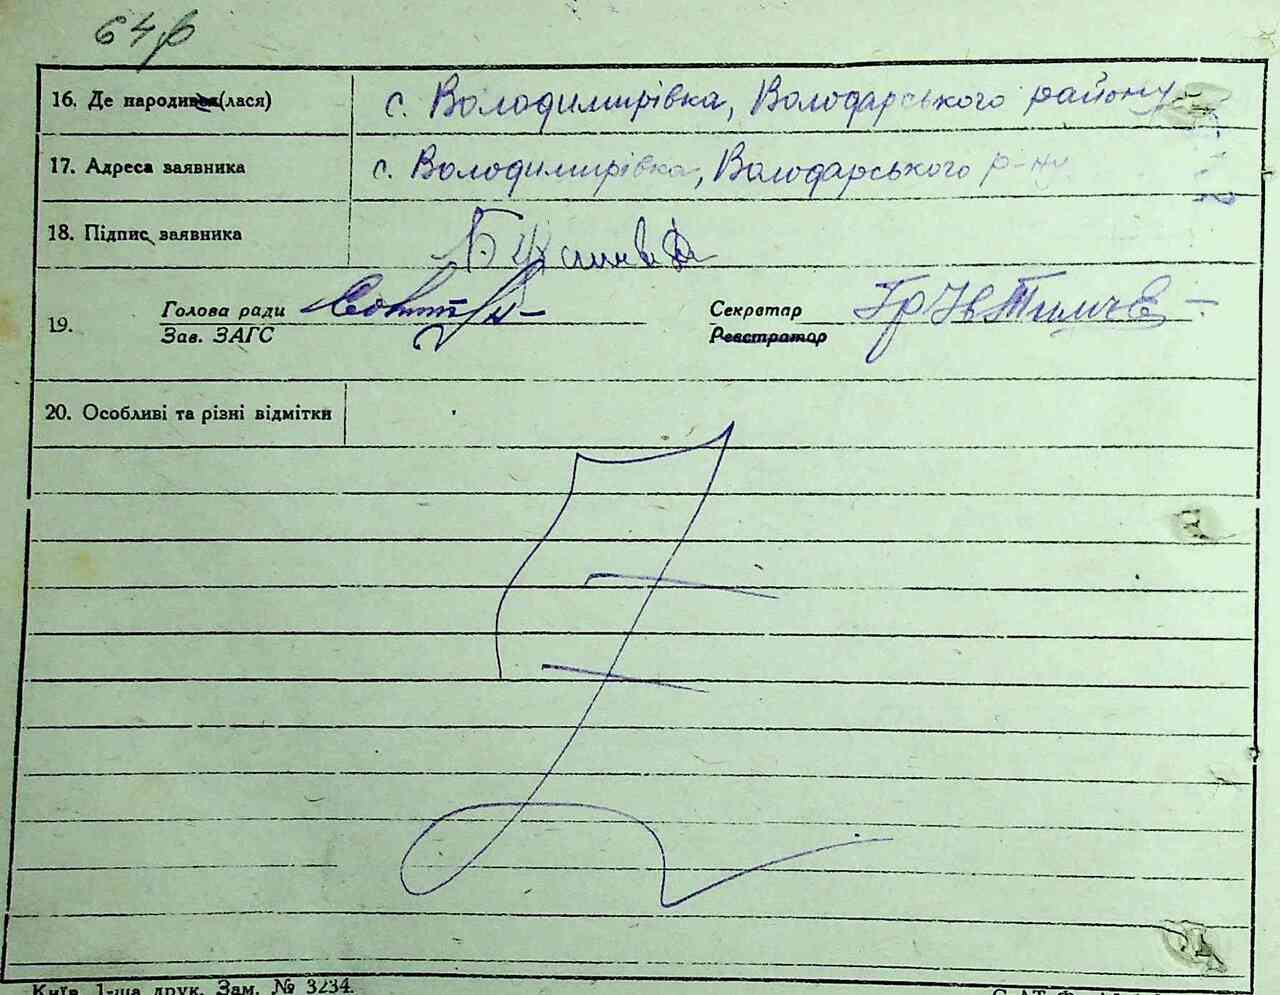 64
16. Де народився(лася) с. Володимирівка, Володарського району
17. Адреса заявника с. Володимирівка, Володарського р-ну
18. Підпис заявника
19. Голова ради Секретар
Зав. ЗАГС Реєстратор
20. Особливі та різні відмітки
Київ, 1-ша друк. Зам. № 3234.